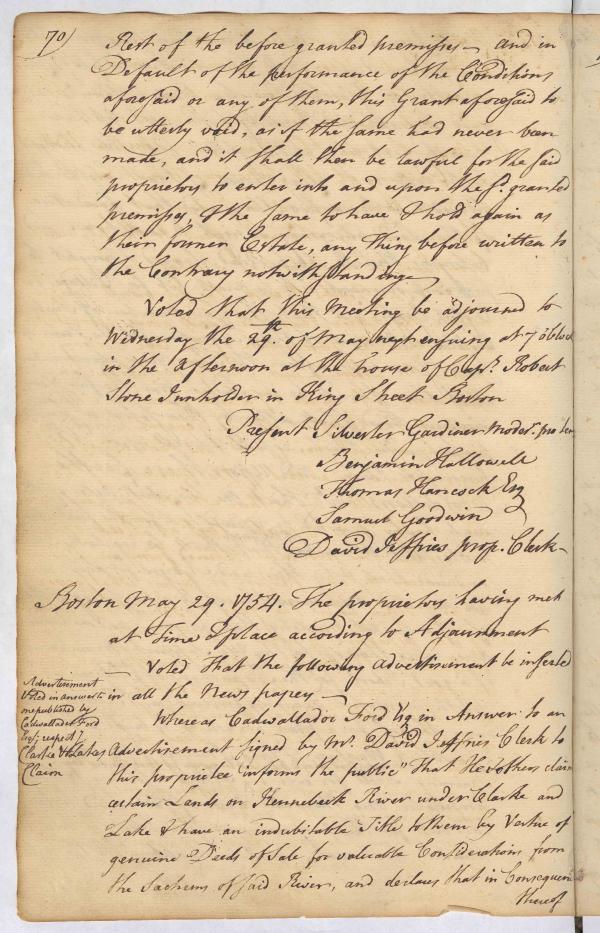 70)
Rest of the before granted premisses – and in
Default of the performance of the Conditions
aforesaid or any of them, this Grant aforesaid to
be utterly void, as if the same had never been
made, and it shall then be lawful for the said
proprietors to enter into and upon the sd. granted
premisses, & the same to have & hold again as
their former Estate, any thing before written to
the Contrary notwithstanding –
Voted that this Meeting be adjourned to
Wednesday the 29th. of May next ensuing at 7 oClock
in the afternoon at the house of Capt. Robert
Stone Innholder in King Street Boston
Present Silvester Gardiner Moder. pro tem
Benjamin Hallowell
Thomas Hancock Esq
Samuel Goodwin
David Jeffries prop. Clerk –
Boston May 29. 1754. The proprietors having met
at Time & place according to Adjournment
Voted That the following advertisement be inserted
in all the News papers –
Advertisement
Voted in answer to
one published by
Cadwallader Ford
Esq. respectg.
Clarke & Lakes
Claim
Whereas Cadwallador Ford Esq in Answer to an
Advertisement signed by Mr. David Jeffries Clerk to
this proprietee informs the public "That He & others claim
certain Lands on Kennebeck River under Clarke and
Lake & have an indubitable Title to them by Vertue of
genuine Deeds of Sale for valuable Considerations from
the Sachems of said River, and declares that in Consequence
thereof